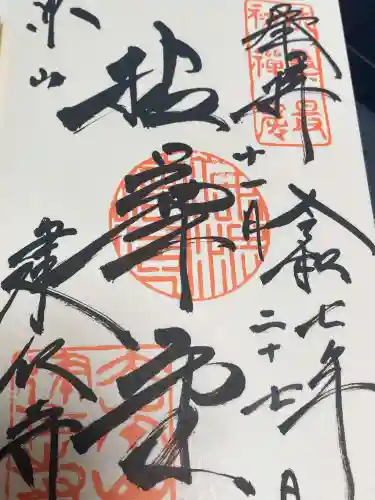 奉拝
令和七年
十一月
二十七日
拈華堂
東山
建仁寺